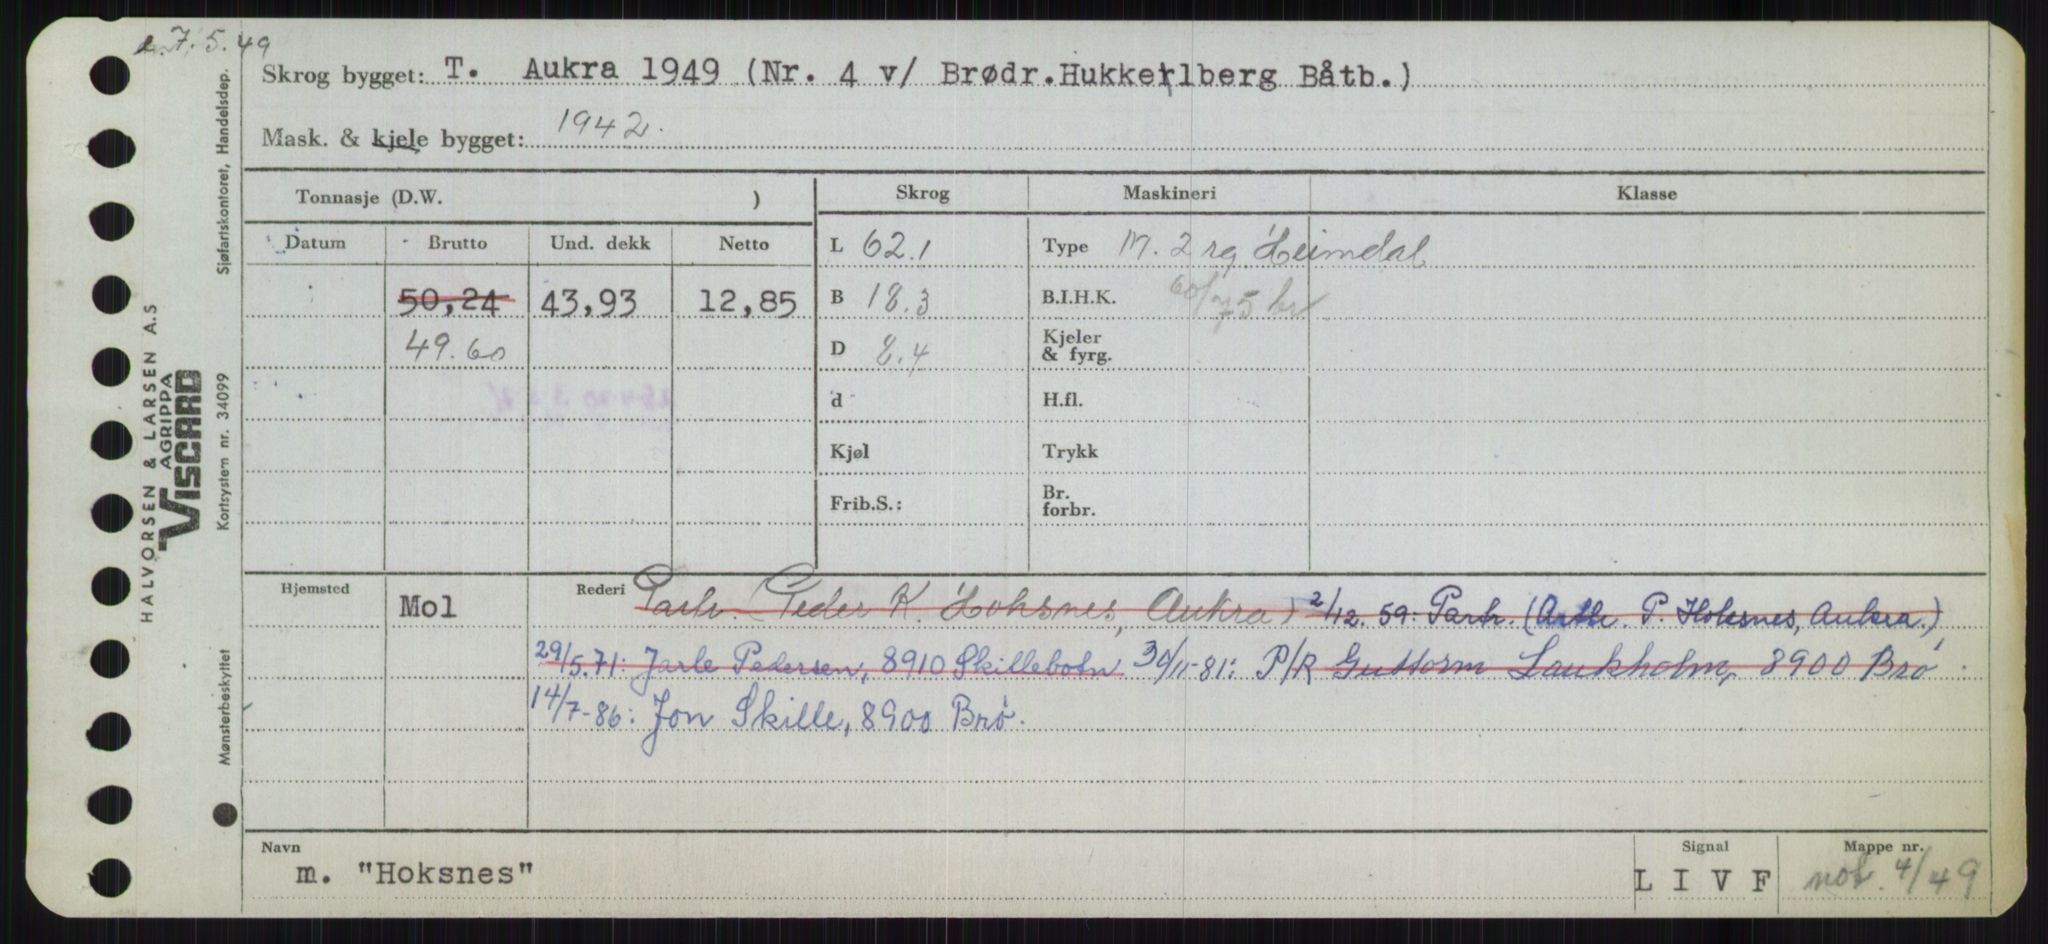 7.5.49
Skrog bygget: T. Aukra 1949 (Nr. 4 v/ Brødr.Hukkelberg Båtb.)
Mask. & kjele bygget: 1942.
Tonnasje (D.W. )
Skrog Maskineri Klasse
Datum Brutto Und. dekk Netto
L 62.1 Type M. 2 sg Heimdal
50,24 43,93 12,85 B 18.3 B.I.H.K. 60/75 br
49.60 D 8.4 Kjeler & fyrg.
d H.fl.
Kjøl Trykk
Frib.S.: Br. forbr.
Hjemsted Mol Rederi Partr. (Peder K. Hoksnes, Aukra) 2/12. 59: Partr. (Arth. P. Hoksnes, Aukra.)
29/5.71: Jarle Pedersen, 8910 Skillebotn 30/11-81: P/R Guttorm Laukholm, 8900 Brø.
14/7-86: Jon Skille, 8900 Brø.
Navn Signal Mappe nr.
m. "Hoksnes" L I V F not. 4/49
HALVORSEN & LARSEN A.S
AGRIPPA
VISCARD
Mønsterbeskyttet Kortsystem nr. 34099 Sjøfartskontoret, Handelsdep.